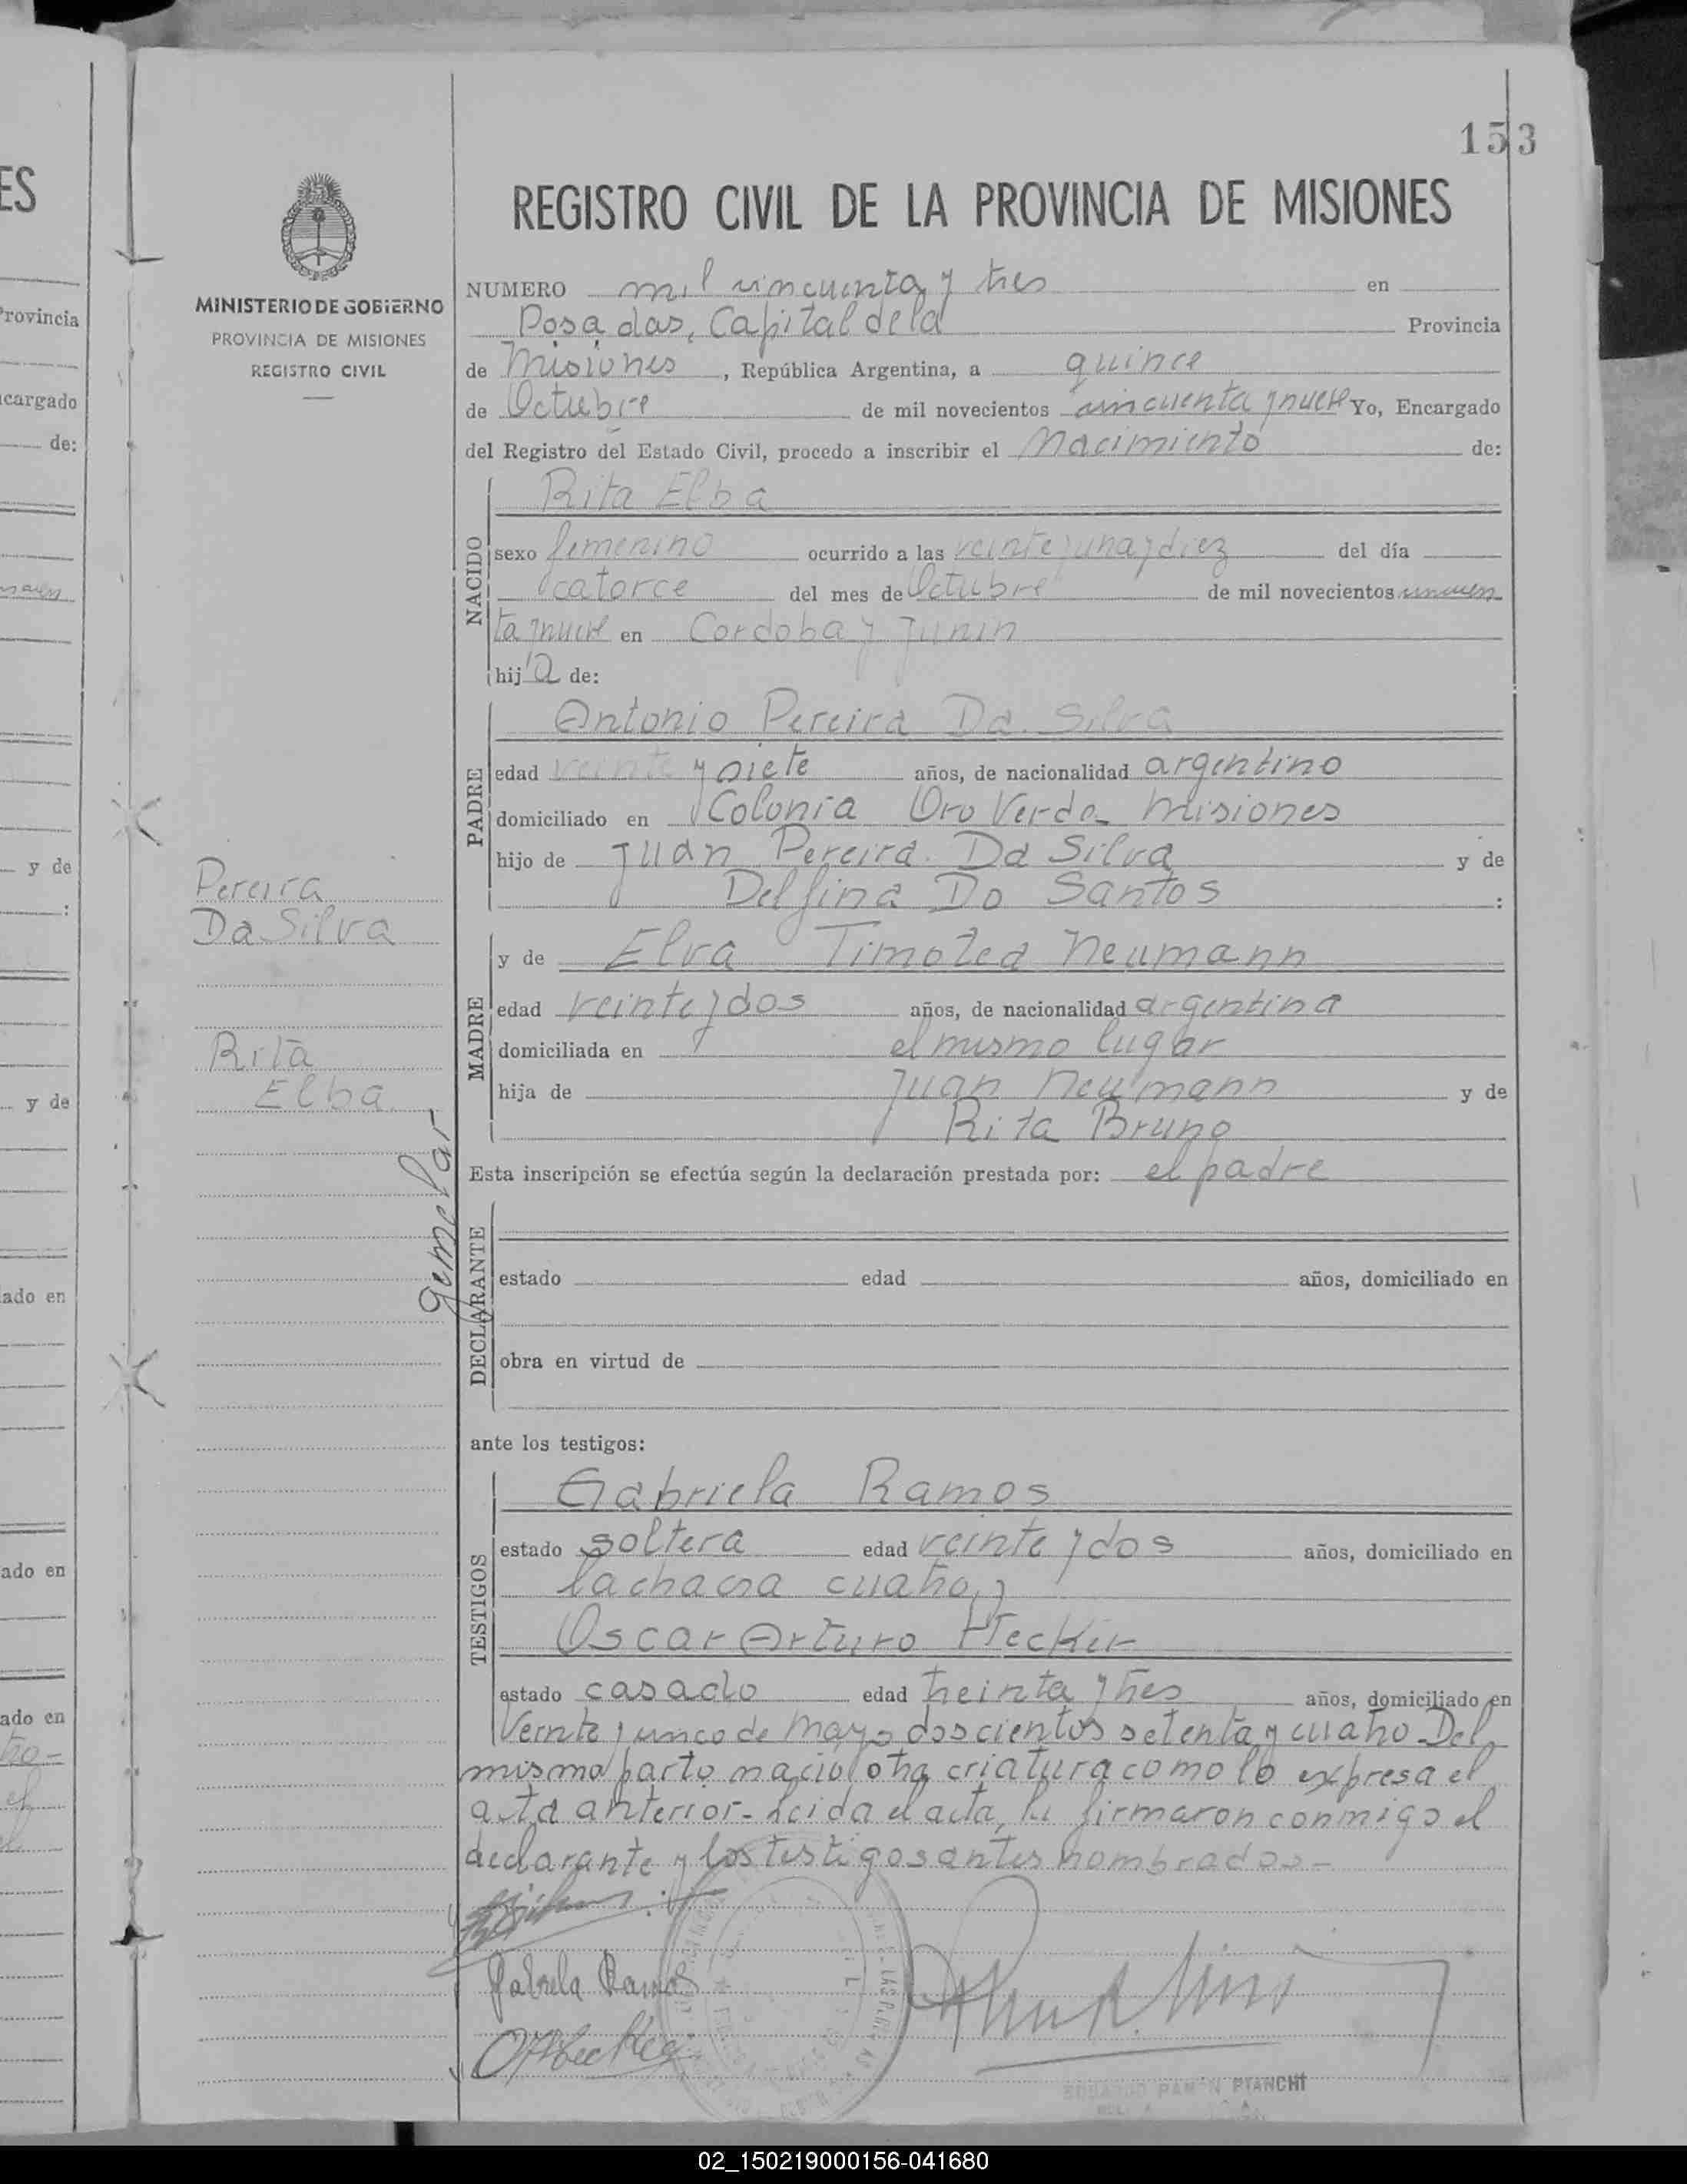 ES
Provincia
cargado
de:
y de
:
y de
ado en
ado en
ado en
MINISTERIO DE GOBIERNO
PROVINCIA DE MISIONES
REGISTRO CIVIL
Pereira
Da Silva
Rita
Elba
gemelar
153
REGISTRO CIVIL DE LA PROVINCIA DE MISIONES
NUMERO mil cincuenta y tres en
Posadas, Capital de la Provincia
de Misiones, República Argentina, a quince
de Octubre de mil novecientos cincuenta y nueve Yo, Encargado
del Registro del Estado Civil, procedo a inscribir el Nacimiento de:
NACIDO
Rita Elba
sexo femenino ocurrido a las veinte y una y diez del día
catorce del mes de Octubre de mil novecientos cincuen
ta y nueve en Cordoba y Junin
hija de:
PADRE
Antonio Pereira Da Silva
edad veinte y siete años, de nacionalidad argentino
domiciliado en Colonia Oro Verde Misiones
hijo de Juan Pereira Da Silva y de
Delfina Do Santos :
MADRE
y de Elva Timotea Neumann
edad veinte y dos años, de nacionalidad argentina
domiciliada en el mismo lugar
hija de Juan Neumann y de
Rita Bruno
Esta inscripción se efectúa según la declaración prestada por: el padre
DECLARANTE
estado edad años, domiciliado en
obra en virtud de
ante los testigos:
TESTIGOS
Gabriela Ramos
estado soltera edad veinte y dos años, domiciliado en
la chacra cuatro, y
Oscar Arturo Hecker
estado casado edad treinta y tres años, domiciliado en
Veinte y cinco de Mayo doscientos setenta y cuatro Del
mismo parto nació otra criatura como lo expresa el
acta anterior - Leida el acta, la firmaron conmigo el
declarante y los testigos antes nombrados -
Gabriela Ramos
OAHecker
PIANCHI
02_150219000156-041680